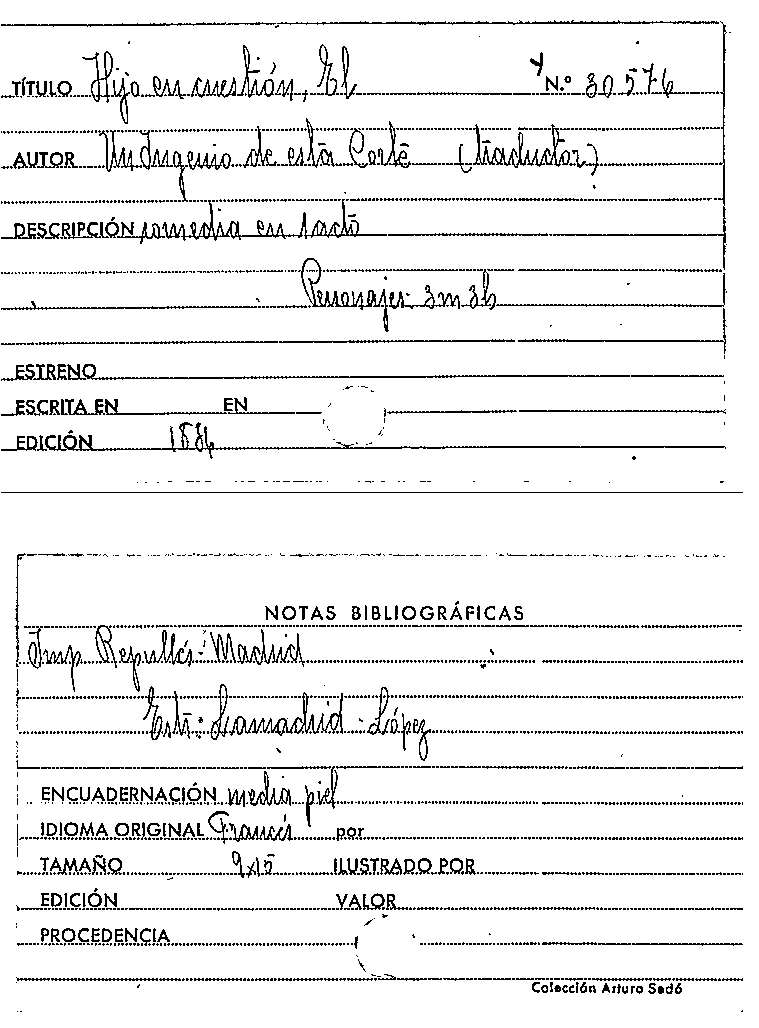 TÍTULO Hijo en cuestión, El N.º 30576
AUTOR Un Ingenio de esta Corte (traductor)
DESCRIPCIÓN comedia en 1 acto
Personajes 3m 3h
ESTRENO
ESCRITA EN EN
EDICIÓN
NOTAS BIBLIOGRÁFICAS
Imp Repullés-Madrid
Estr: Lamadrid-López
ENCUADERNACIÓN media piel
IDIOMA ORIGINAL Francés por
TAMAÑO 9x15 ILUSTRADO POR
EDICIÓN VALOR
PROCEDENCIA
Colección Arturo Sedó